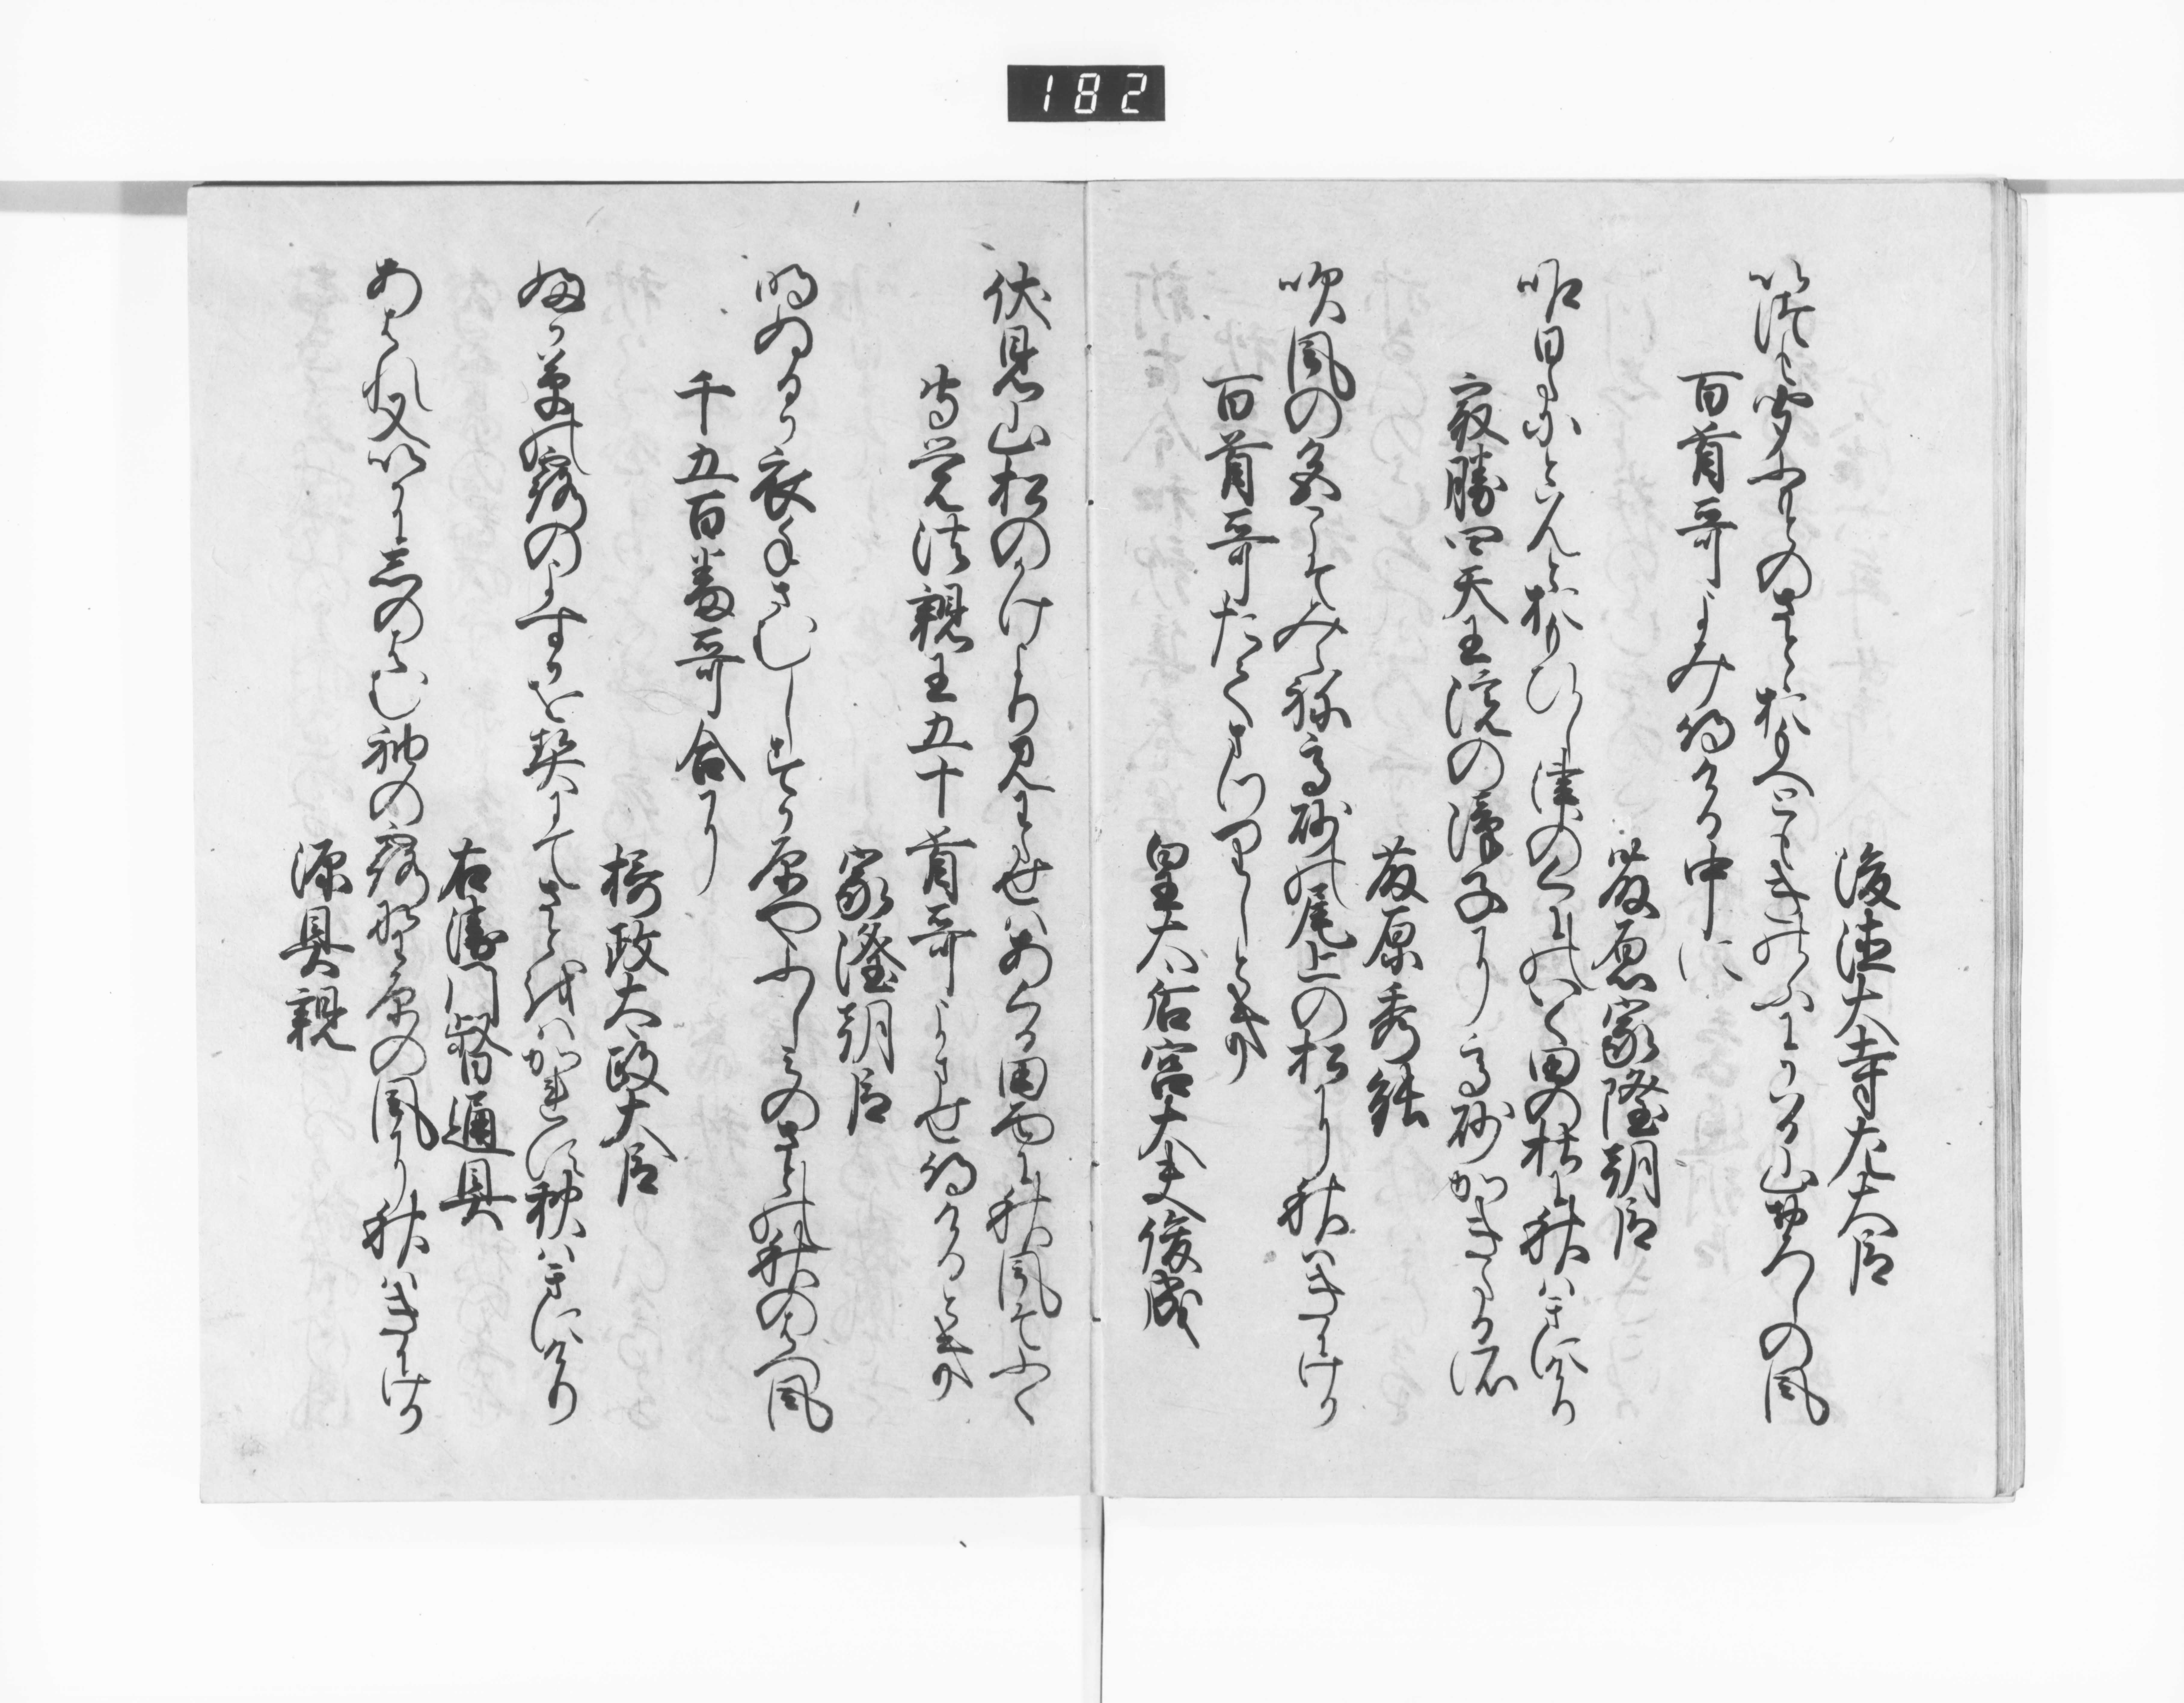 182
後徳大寺左大臣
いつも聞ふもとのさとゝおもへともきのふにかはる山おろしの風
百首哥よみ侍ける中に
藤原家隆朝臣
昨日たにとはんと思ひし津のくにのいく田の杜に秋はきにけり
最勝四天王院の障子に高砂かきたる所
藤原秀能
吹風の色こそみえね高砂の尾上の松に秋はきにけり
百首哥たてまつりしとき
皇太后宮大夫俊成
伏見山松のかけより見わたせはあくる田面に秋風そふく
守覚法親王五十首哥よませ侍けるとき
家隆朝臣
明ぬるか衣手さむしすか原やふしみのさとの秋のはつ風
千五百番哥合に
摂政太政大臣
ふか草の露のよすかを契にてさとをはかれす秋はきにけり
右衛門督通具
あはれ又いかにしのはむ袖の露野原の風に秋はきにけり
源具親